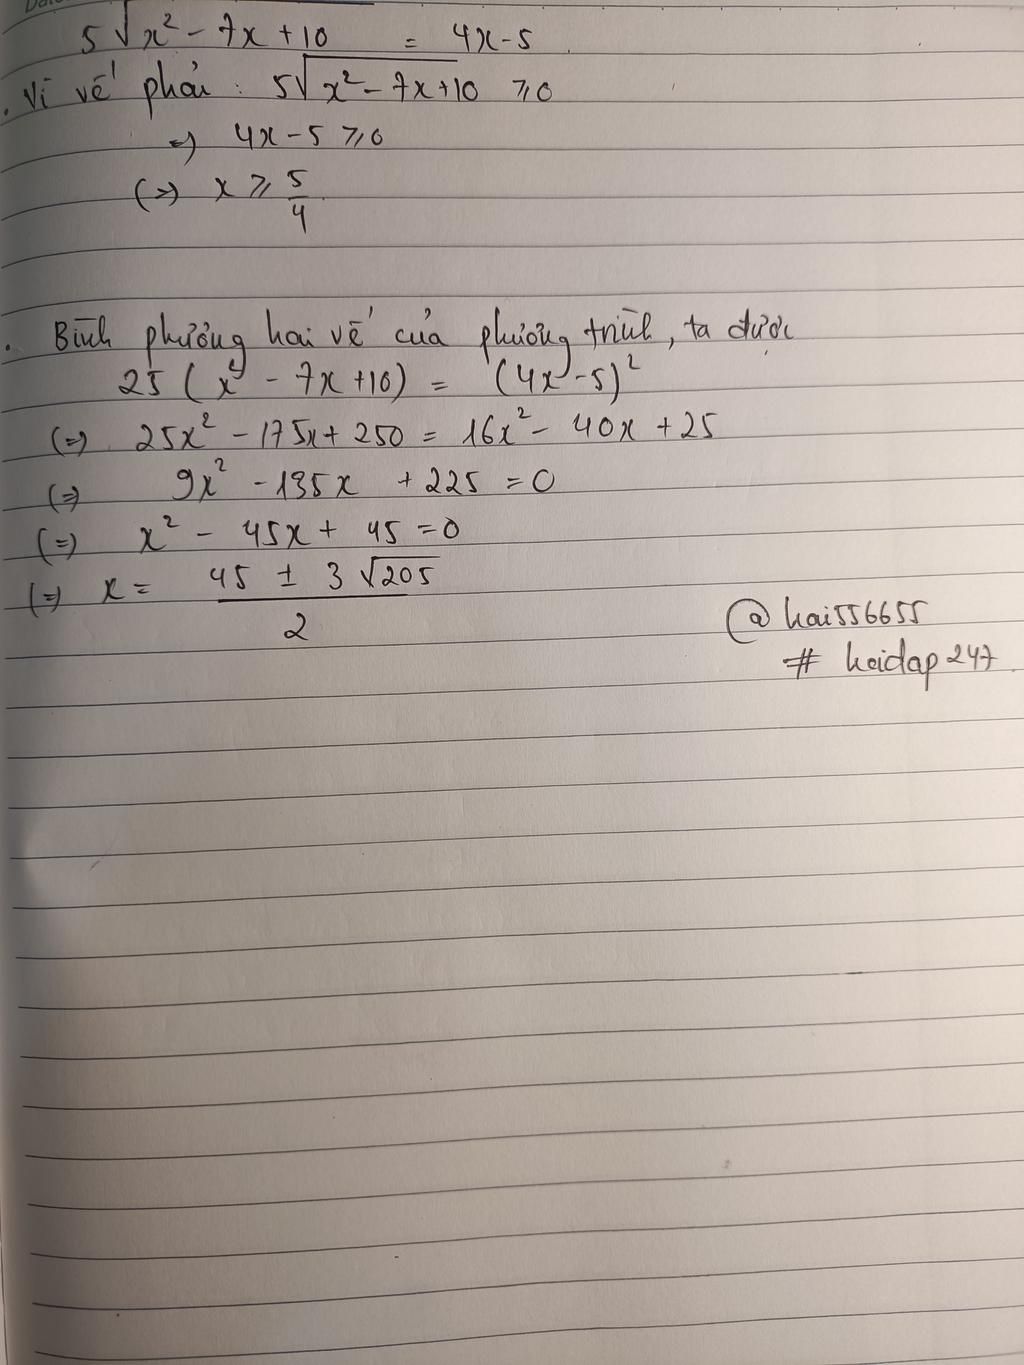 5√x² - 7x + 10 = 4x - 5
. Vì vế phải : 5√x² - 7x + 10 ⩾ 0
=> 4x - 5 ⩾ 0
(=) x ⩾ 5/4
. Bình phương hai vế của phương trình, ta được
25 (x² - 7x + 10) = (4x - 5)²
(=) 25x² - 175x + 250 = 16x² - 40x + 25
(=) 9x² - 135x + 225 = 0
(=) x² - 45x + 45 = 0
(=) x = 45 ± 3√205 / 2
@hai556655
# hoidap247